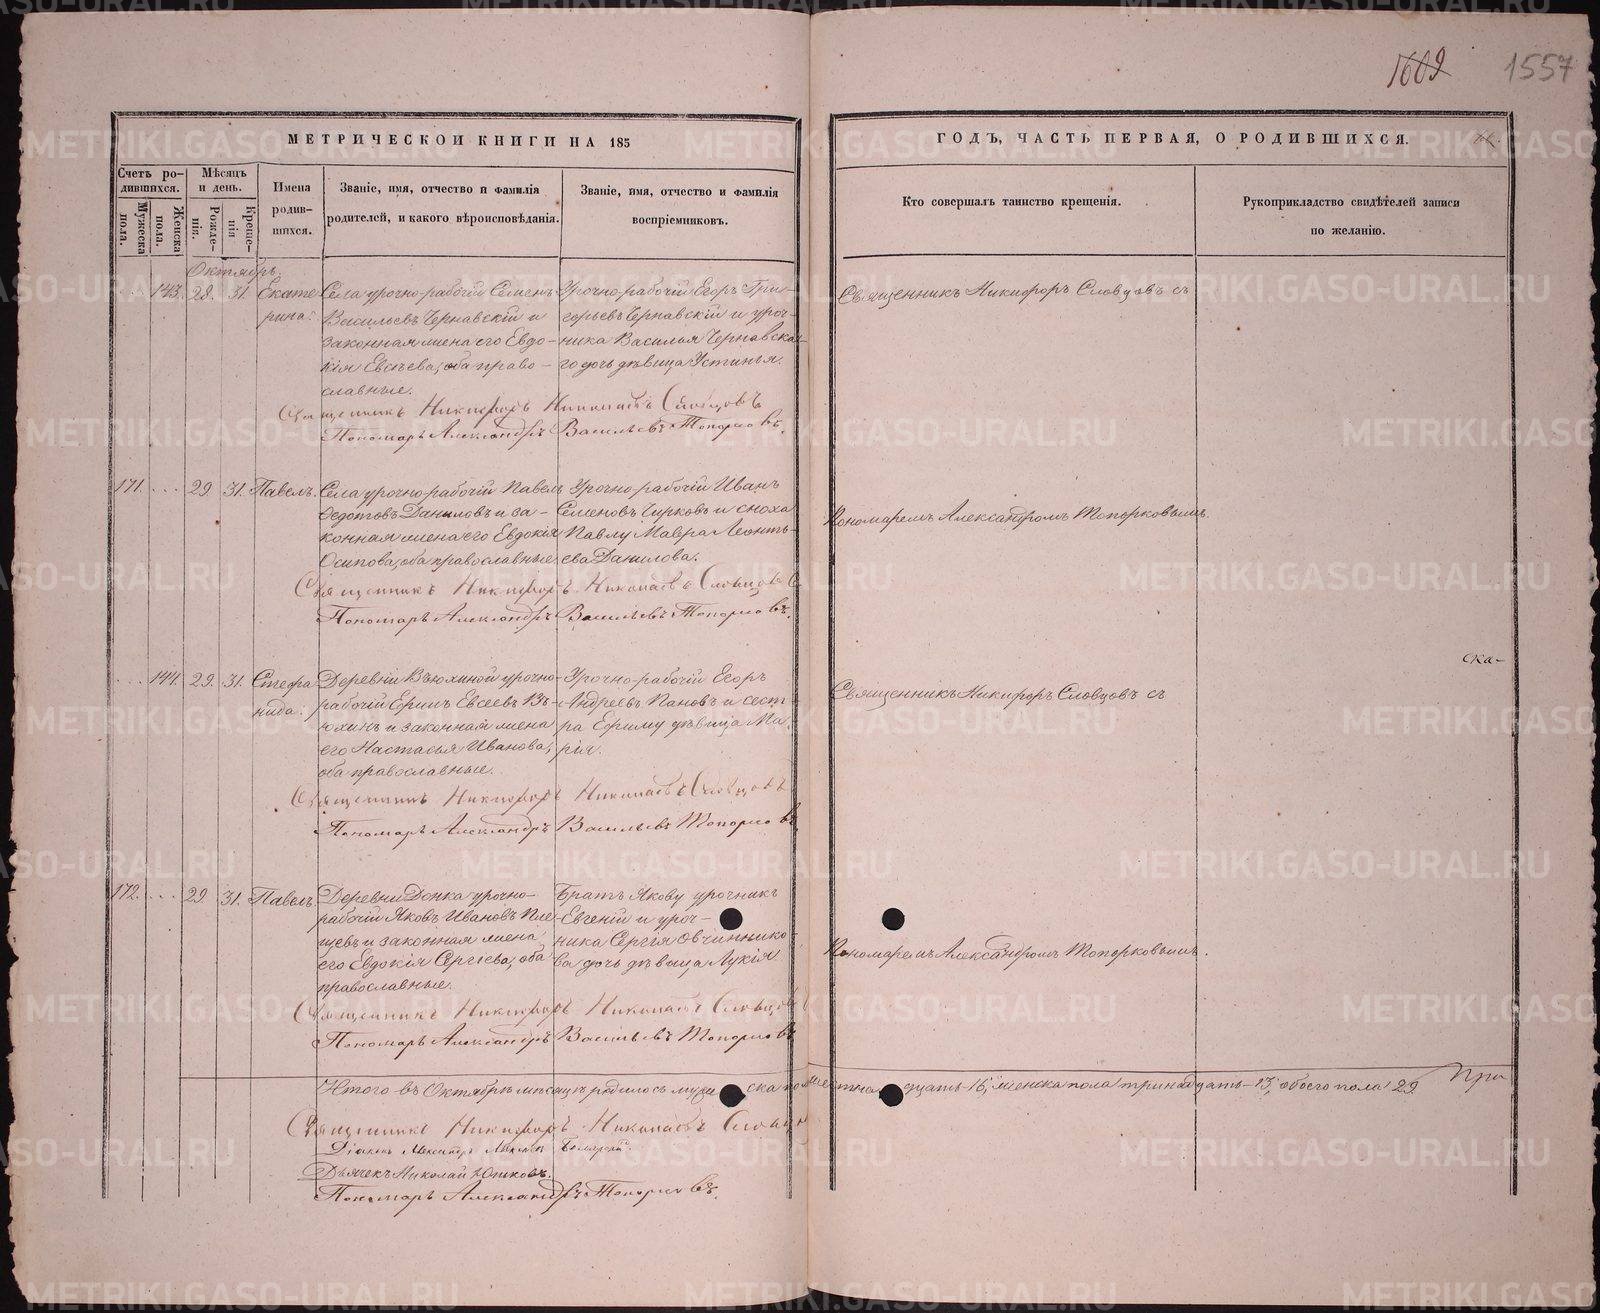 1609 1557
МЕТРИЧЕСКОЙ КНИГИ НА 185
ГОДЪ, ЧАСТЬ ПЕРВАЯ, О РОДИВШИХСЯ.
Счетъ родившихся.
Мужеска пола.
Женска пола.
Мѣсяцъ и день.
Рожденія.
Крещенія
Имена родившихся.
Званіе, имя, отчество и фамилія
родителей, и какого вѣроисповѣданія.
Званіе, имя, отчество и фамилія
воспріемниковъ.
Кто совершалъ таинство крещенія.
Рукоприкладство свидѣтелей записи
по желанію.
Октябрь.
143. 29. 31. Екате
рина.
Села урочно-рабочій Семенъ
Васильевъ Чернавскій и
законная жена его Евдо-
кія Евсѣева, оба право-
славные.
Урочно-рабочій Егоръ Гри-
горьевъ Чернавскій и уроч-
ника Василья Чернавска-
го дочь дѣвица Устинья.
Священникъ Никифоръ Словцовъ съ
Священникъ Никифоръ Николаевъ Словцовъ
Пономарь Александръ Васильевъ Топорковъ.
171. 29 31. Павелъ.
Села урочно-рабочій Павелъ
Ѳедотовъ Даниловъ и за-
конная жена его Евдокія
Осипова, оба православные.
Урочно-рабочій Иванъ
Семеновъ Чирковъ и сноха
Павлу Мавра Леонть-
ева Данилова.
Пономаремъ Александромъ Топорковымъ.
Священникъ Никифоръ Николаевъ Словцовъ
Пономарь Александръ Васильевъ Топорковъ.
144. 29. 31. Стефа
нида.
Деревни Вьюхиной урочно-
рабочій Ефимъ Евсеевъ Вь-
юхинъ и законная жена
его Настасья Иванова,
оба православные.
Урочно-рабочій Егоръ
Андреевъ Пановъ и сест-
ра Ефиму дѣвица Ма-
рія.
ска-
Священникъ Никифоръ Словцовъ съ
Священникъ Никифоръ Николаевъ Словцовъ
Пономарь Александръ Васильевъ Топорковъ
172. 29 31. Павелъ.
Деревни Донка урочно-
рабочій Яковъ Ивановъ Пле-
щевъ и законная жена
его Евдокія Сергіева, оба
православные.
Братъ Якову урочникъ
Евгеній и уроч-
ника Сергія Овчиннико-
ва дочь дѣвица Лукія
Пономаремъ Александромъ Топорковымъ.
Священникъ Никифоръ Николаевъ Словцовъ
Пономарь Александръ Васильевъ Топорковъ
Итого въ Октябрѣ мѣсяцѣ родилось мужеска пола шестнадцать-16, женска пола тринадцать-13, обоего пола 29
При
Священникъ Никифоръ Николаевъ Словцовъ
Діаконъ Александръ
Дьячекъ Николай Юшковъ.
Пономарь Александръ Топорковъ.
METRIKI.GASO-URAL.RU